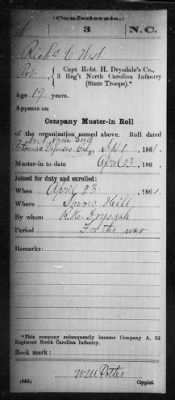 Confederate.
3 N.C.
West
Capt. Robt. H. Drysdale's Co.,
3 Reg't North Carolina Infantry
(State Troops).*
Age 19 years.
Appears on
Company Muster-in Roll
of the organization named above. Roll dated
186 .
Muster-in to date April 23, 186 .
Joined for duty and enrolled:
When April 23, 1861.
Where Snow Hill
By whom Drysdale
Period For the war
Remarks:
*This company subsequently became Company A, 3d
Regiment North Carolina Infantry.
Book mark:
Wm Potter
Copyist.